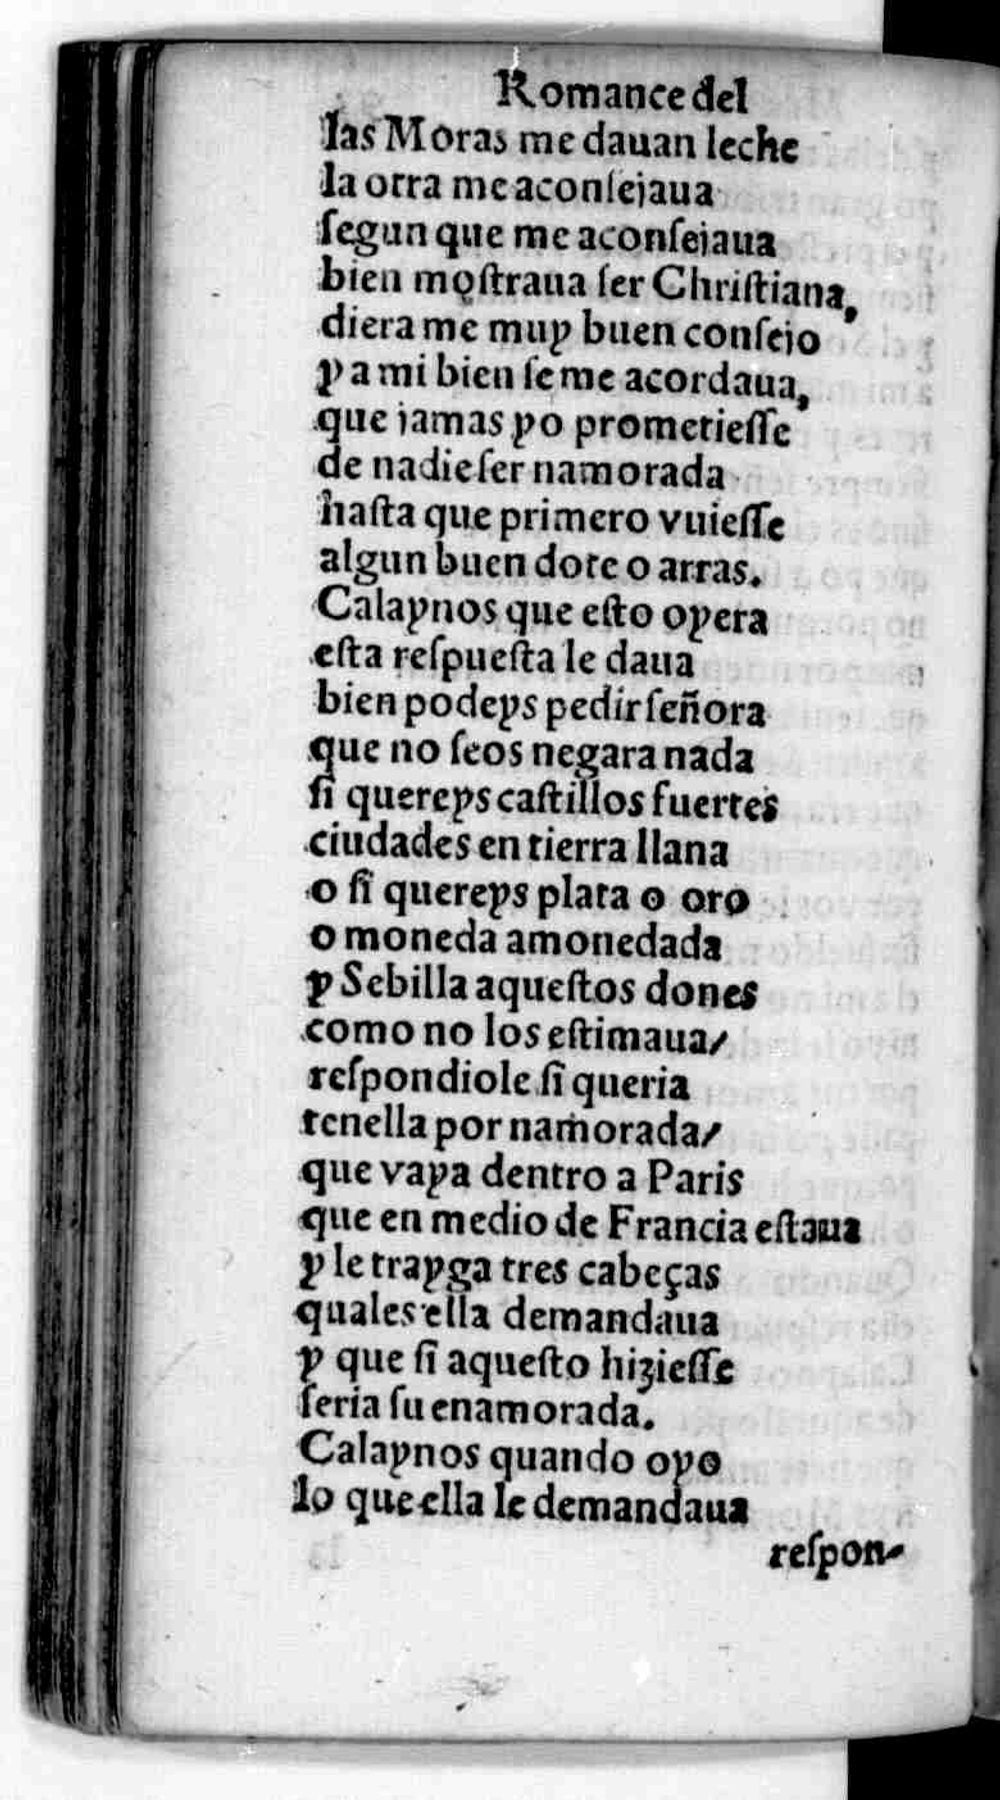 Romance del
las Moras me dauan leche
la otra me aconſejaua
ſegun que me aconſejaua
bien moſtraua ſer Chriſtiana,
diera me muy buen conſejo
y a mi bien ſe me acordaua,
que jamas yo prometieſſe
de nadie ſer namorada
haſta que primero vuieſſe
algun buen dote o arras.
Calaynos que eſto oyera
eſta reſpueſta le daua
bien podeys pedir ſeñora
que no ſeos negara nada
ſi quereys caſtillos fuertes
ciudades en tierra llana
o ſi quereys plata o oro
o moneda amonedada
y Sebilla aqueſtos dones
como no los eſtimaua/
reſpondiole ſi queria
tenella por namorada/
que vaya dentro a Paris
que en medio de Francia eſtaua
y le trayga tres cabeças
quales ella demandaua
y que ſi aqueſto hizieſſe
ſeria ſu enamorada.
Calaynos quando oyo
lo que ella le demandaua
reſpon-